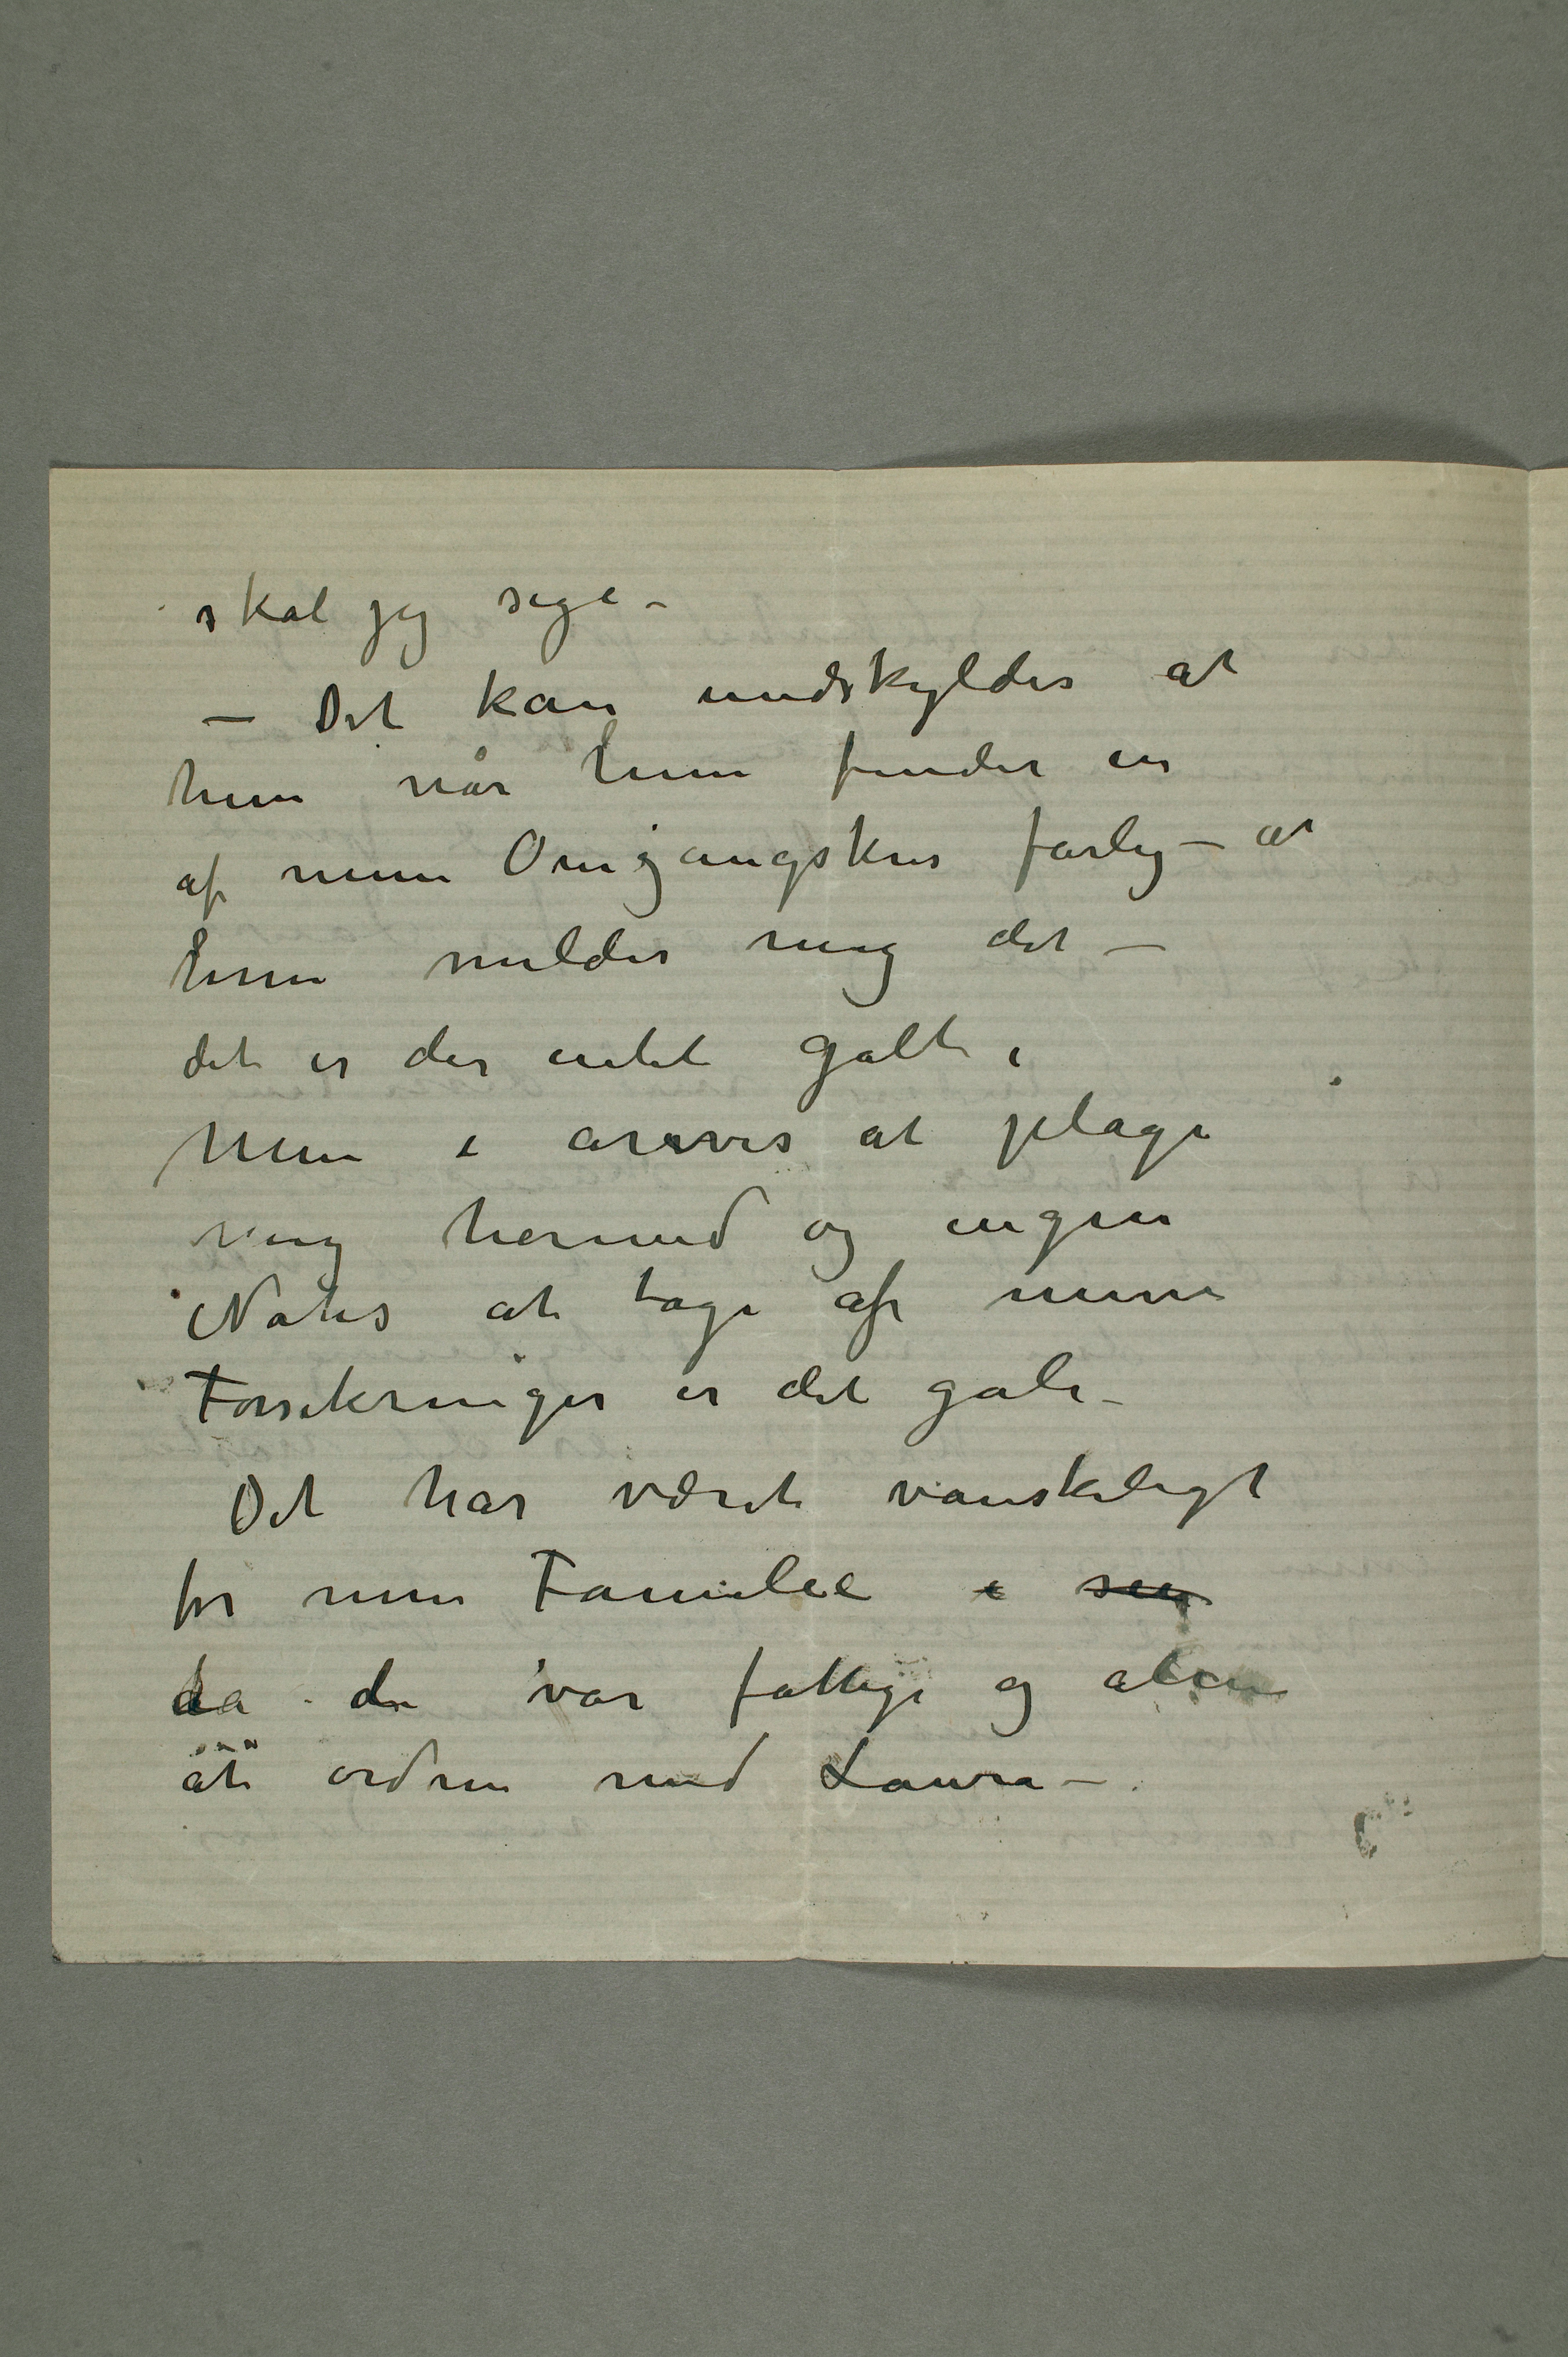 skal jeg sige –
– Det kan undskyldes at
hun når hun finder en
af min Omgangskres farlig – at
hun melder mig det –
det er der intet galt i
Men i aresvis at plage
mig hermed og ingen
Notis at tage af mine
Forsikringer er det gale –
Det har været vanskeligt
for min Familie i seg
da de var fattige og alene
åt ordne med Laura –